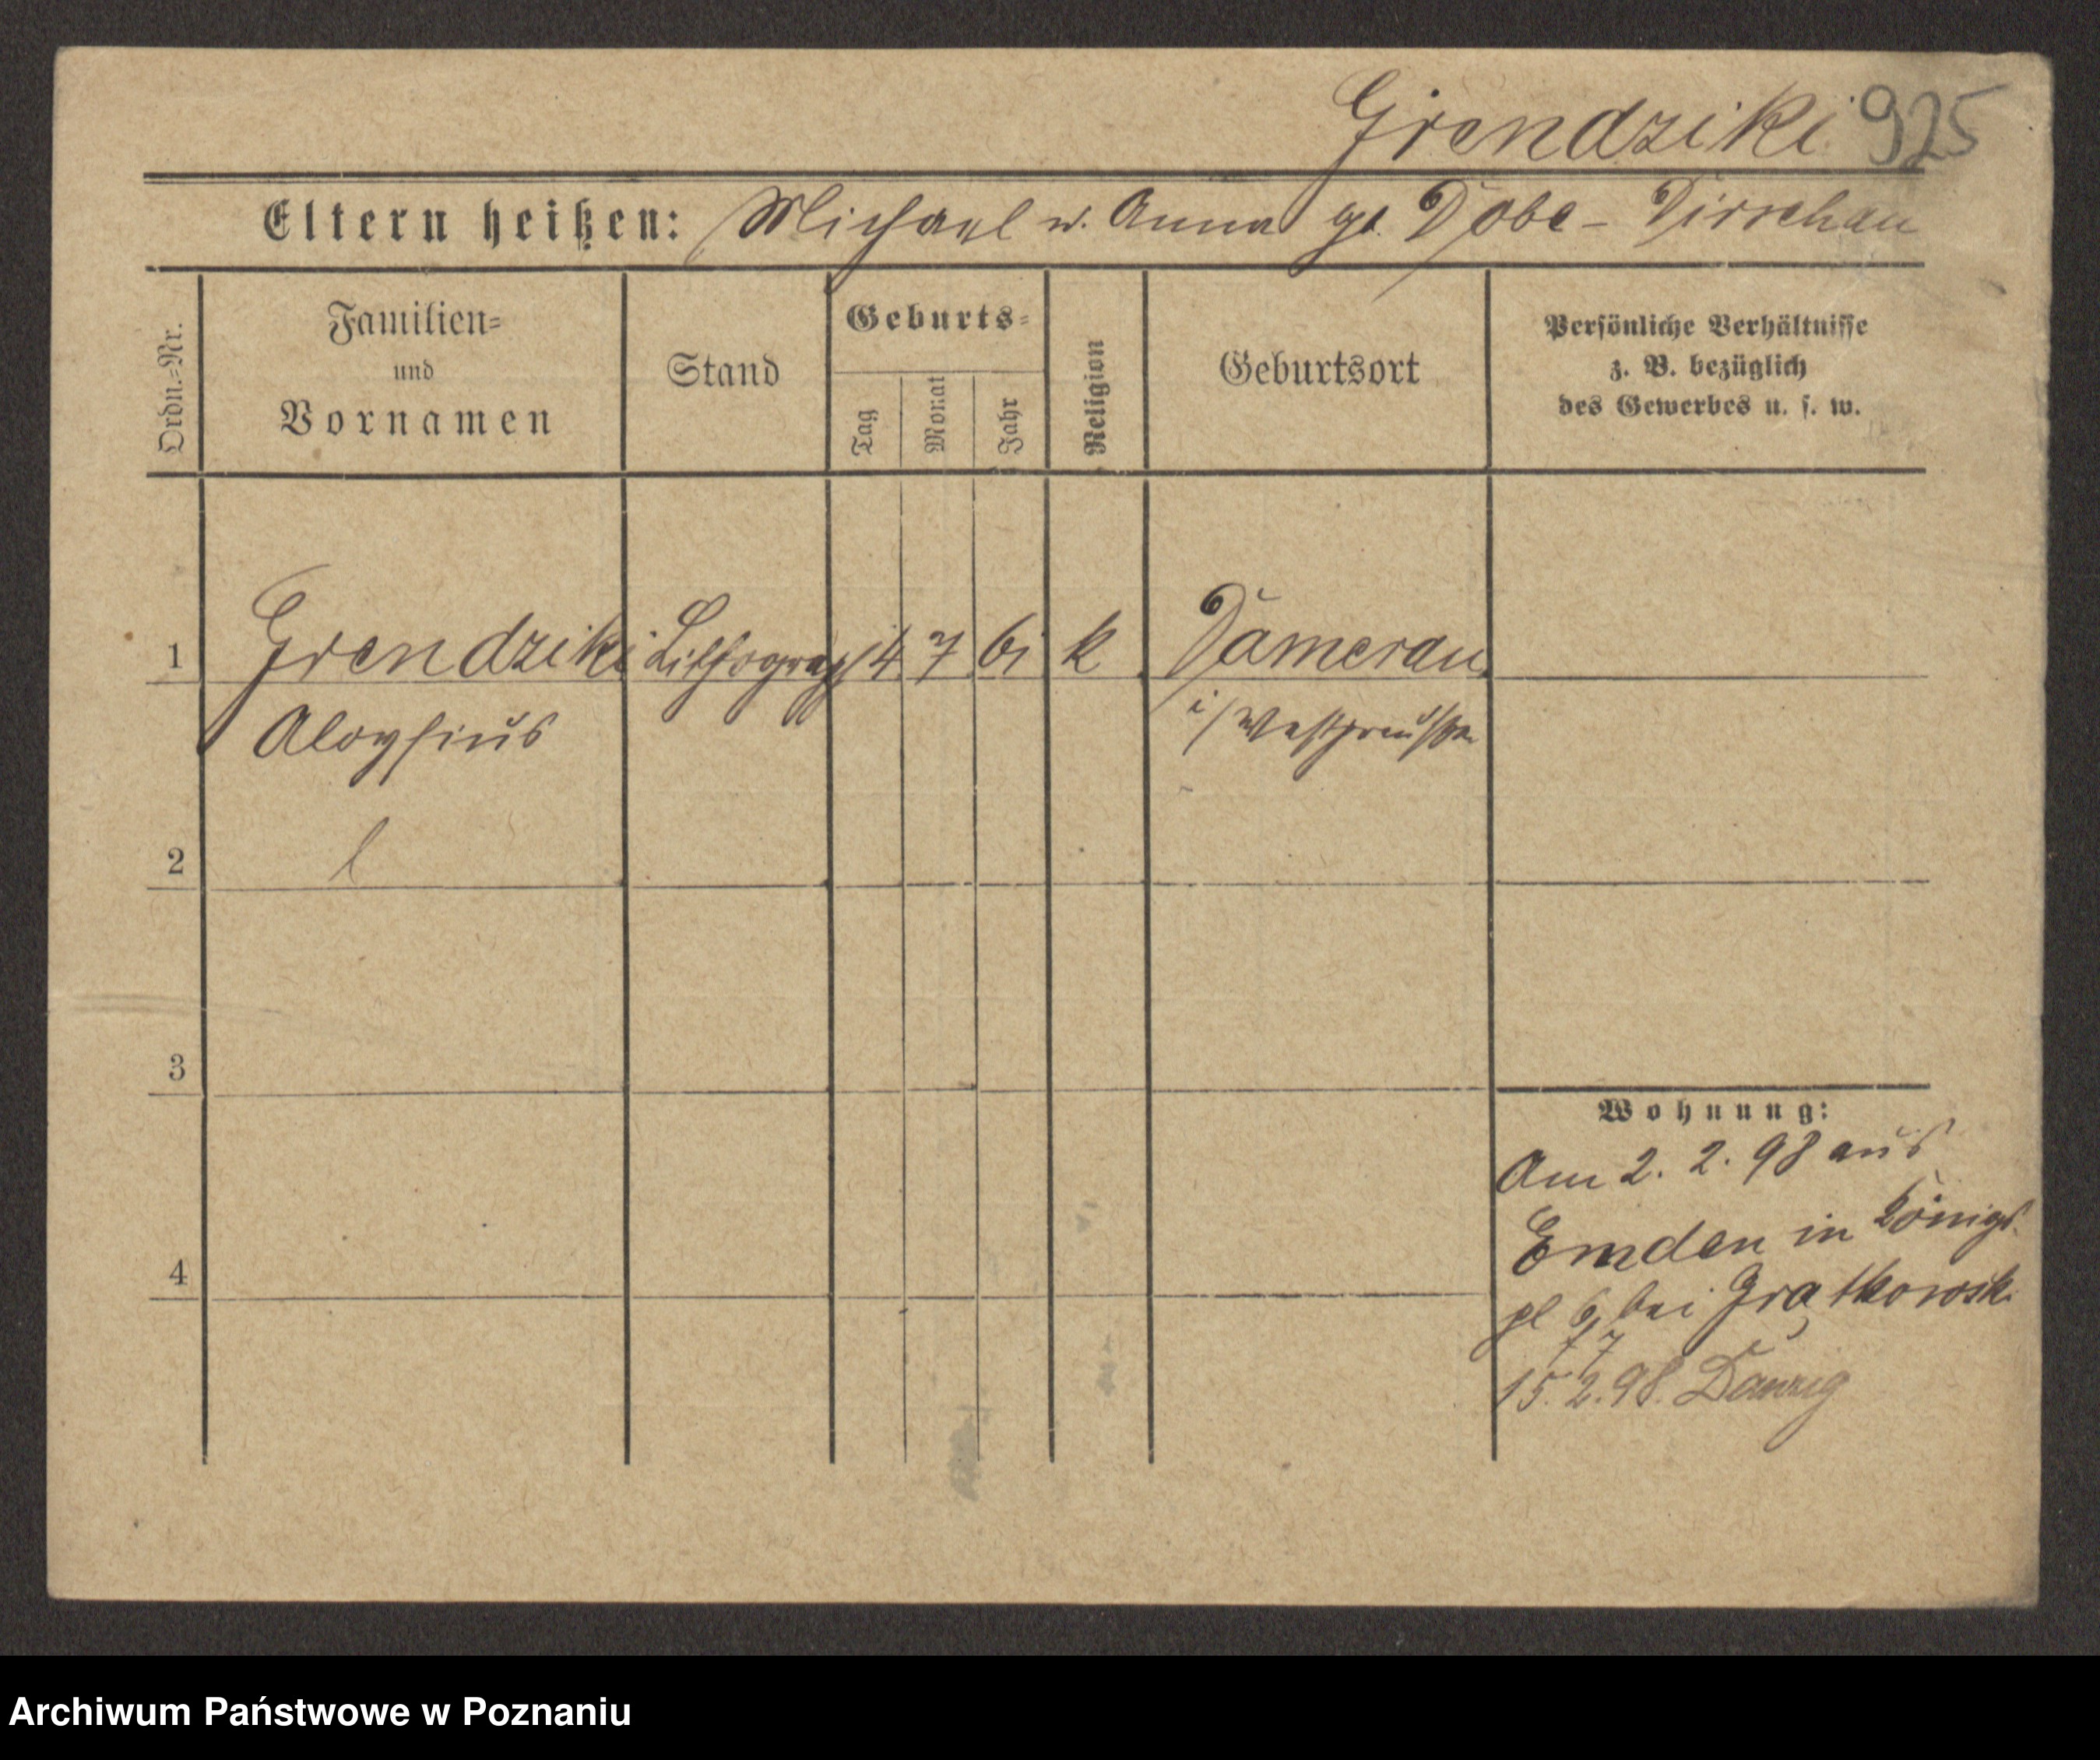 Grendziki 925
Eltern heißen: Michael u. Anna gb. Dobe - Dirschau
Ordn.-Nr.
Familien-
und
Vornamen
Stand
Geburts-
Tag
Monat
Jahr
Religion
Geburtsort
Persönliche Verhältnisse
z. B. bezüglich
des Gewerbes u. s. w.
1 Grendziki Lithograph 4 7 61 k Damerau
Aloysius i/Westpreußen
2
3
Wohnung:
Am 2. 2. 98 aus
Emden in Königs-
4
pl 6, bei Grątkowski
15. 2. 98. Danzig
Archiwum Państwowe w Poznaniu